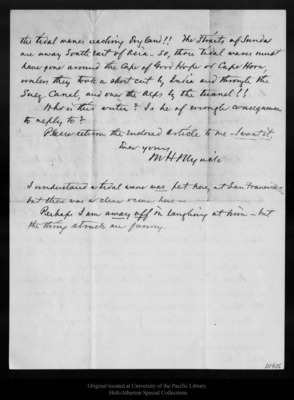 the tidal waves reaching England!! The Straits of Sunda
are away South East of Asia. So, those tidal waves must
have gone around the Cape of Good Hope or Cape Horn
unless they took a short cut by India and through the
Suez Canal, and over the Alps by the tunnel!!
Who is this writer? Is he of enough consequence
to reply to?
Please return the enclosed article to me – I want it.
Ever yours
I understand a tidal wave was felt here, at San Francisco –
but there was a clear ocean here –
Perhaps I am away off in laughing at him – but
the thing struck me funny.
Original located at University of the Pacific Library
Holt-Atherton Special Collections